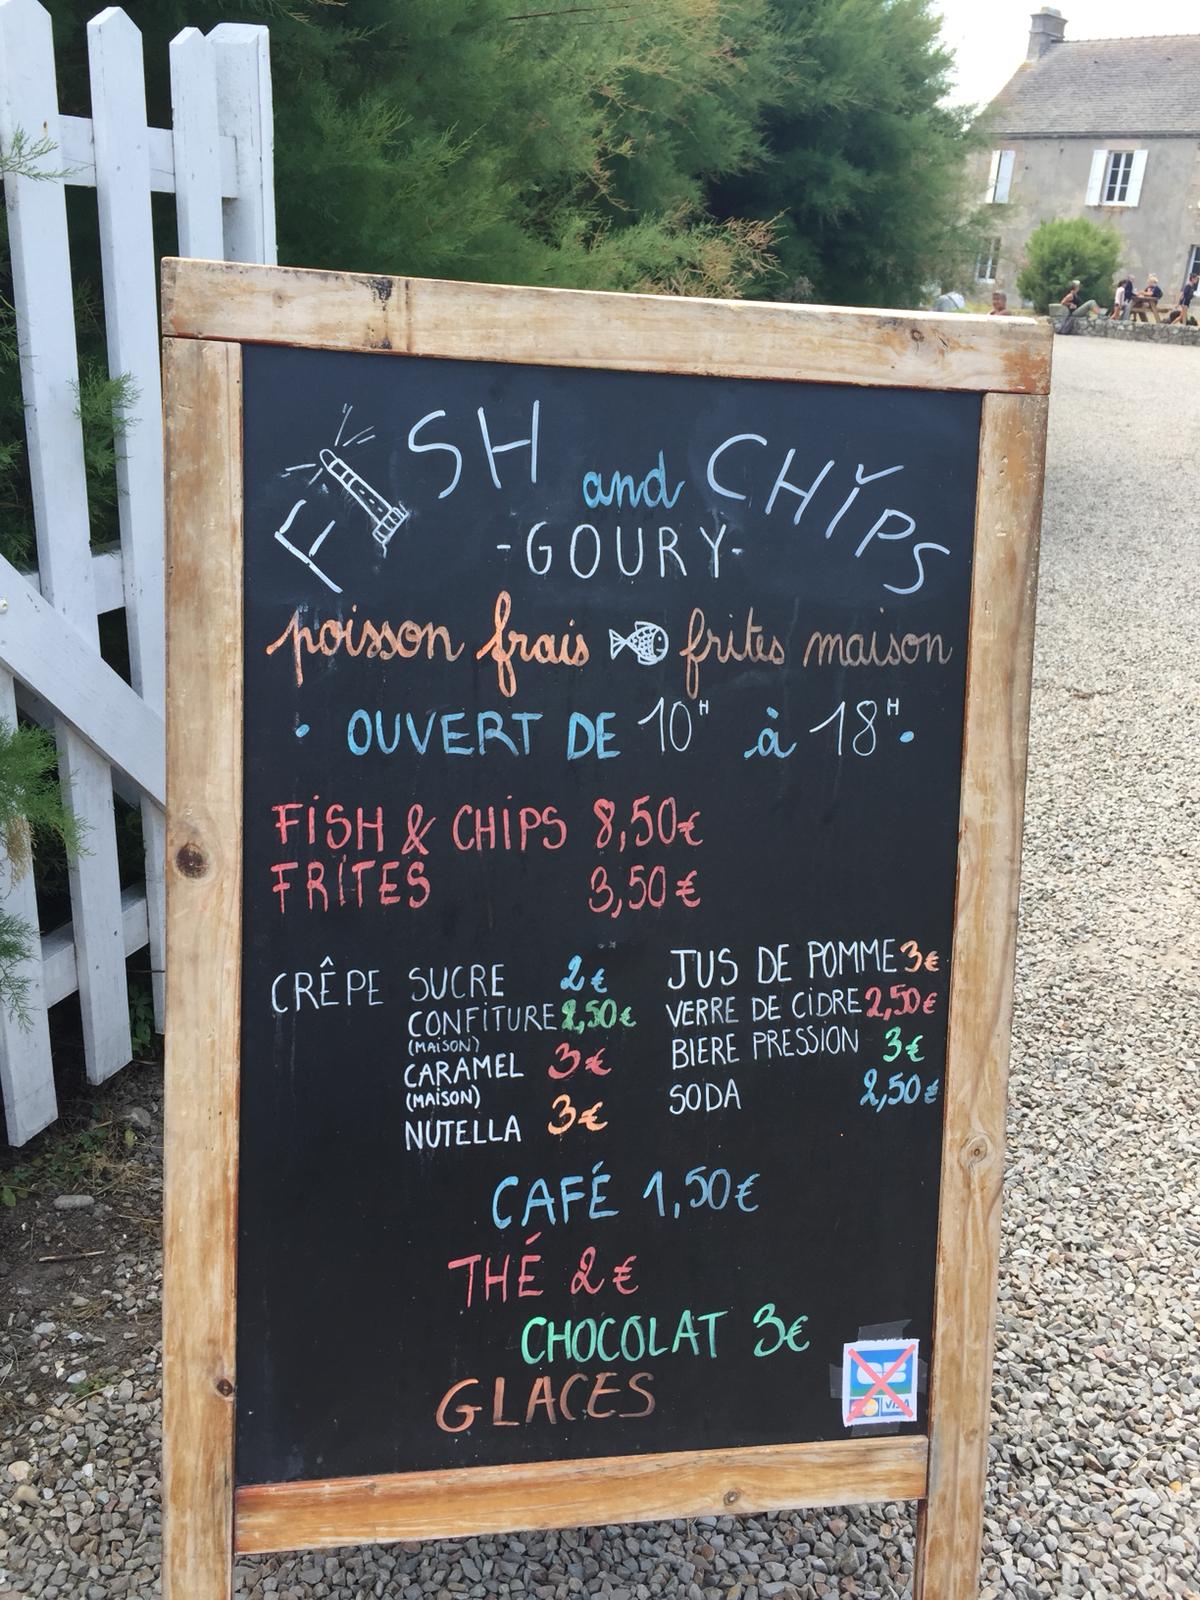 FISH and CHIPS
-GOURY-
poisson frais frites maison
• OUVERT DE 10H à 18H •
FISH & CHIPS 8,50€
FRITES 3,50€
CRÊPE SUCRE 2€
CONFITURE 2,50€
(MAISON)
CARAMEL 3€
(MAISON)
NUTELLA 3€
JUS DE POMME 3€
VERRE DE CIDRE 2,50€
BIERE PRESSION 3€
SODA 2,50€
CAFÉ 1,50€
THÉ 2€
CHOCOLAT 3€
GLACES
CB
VISA